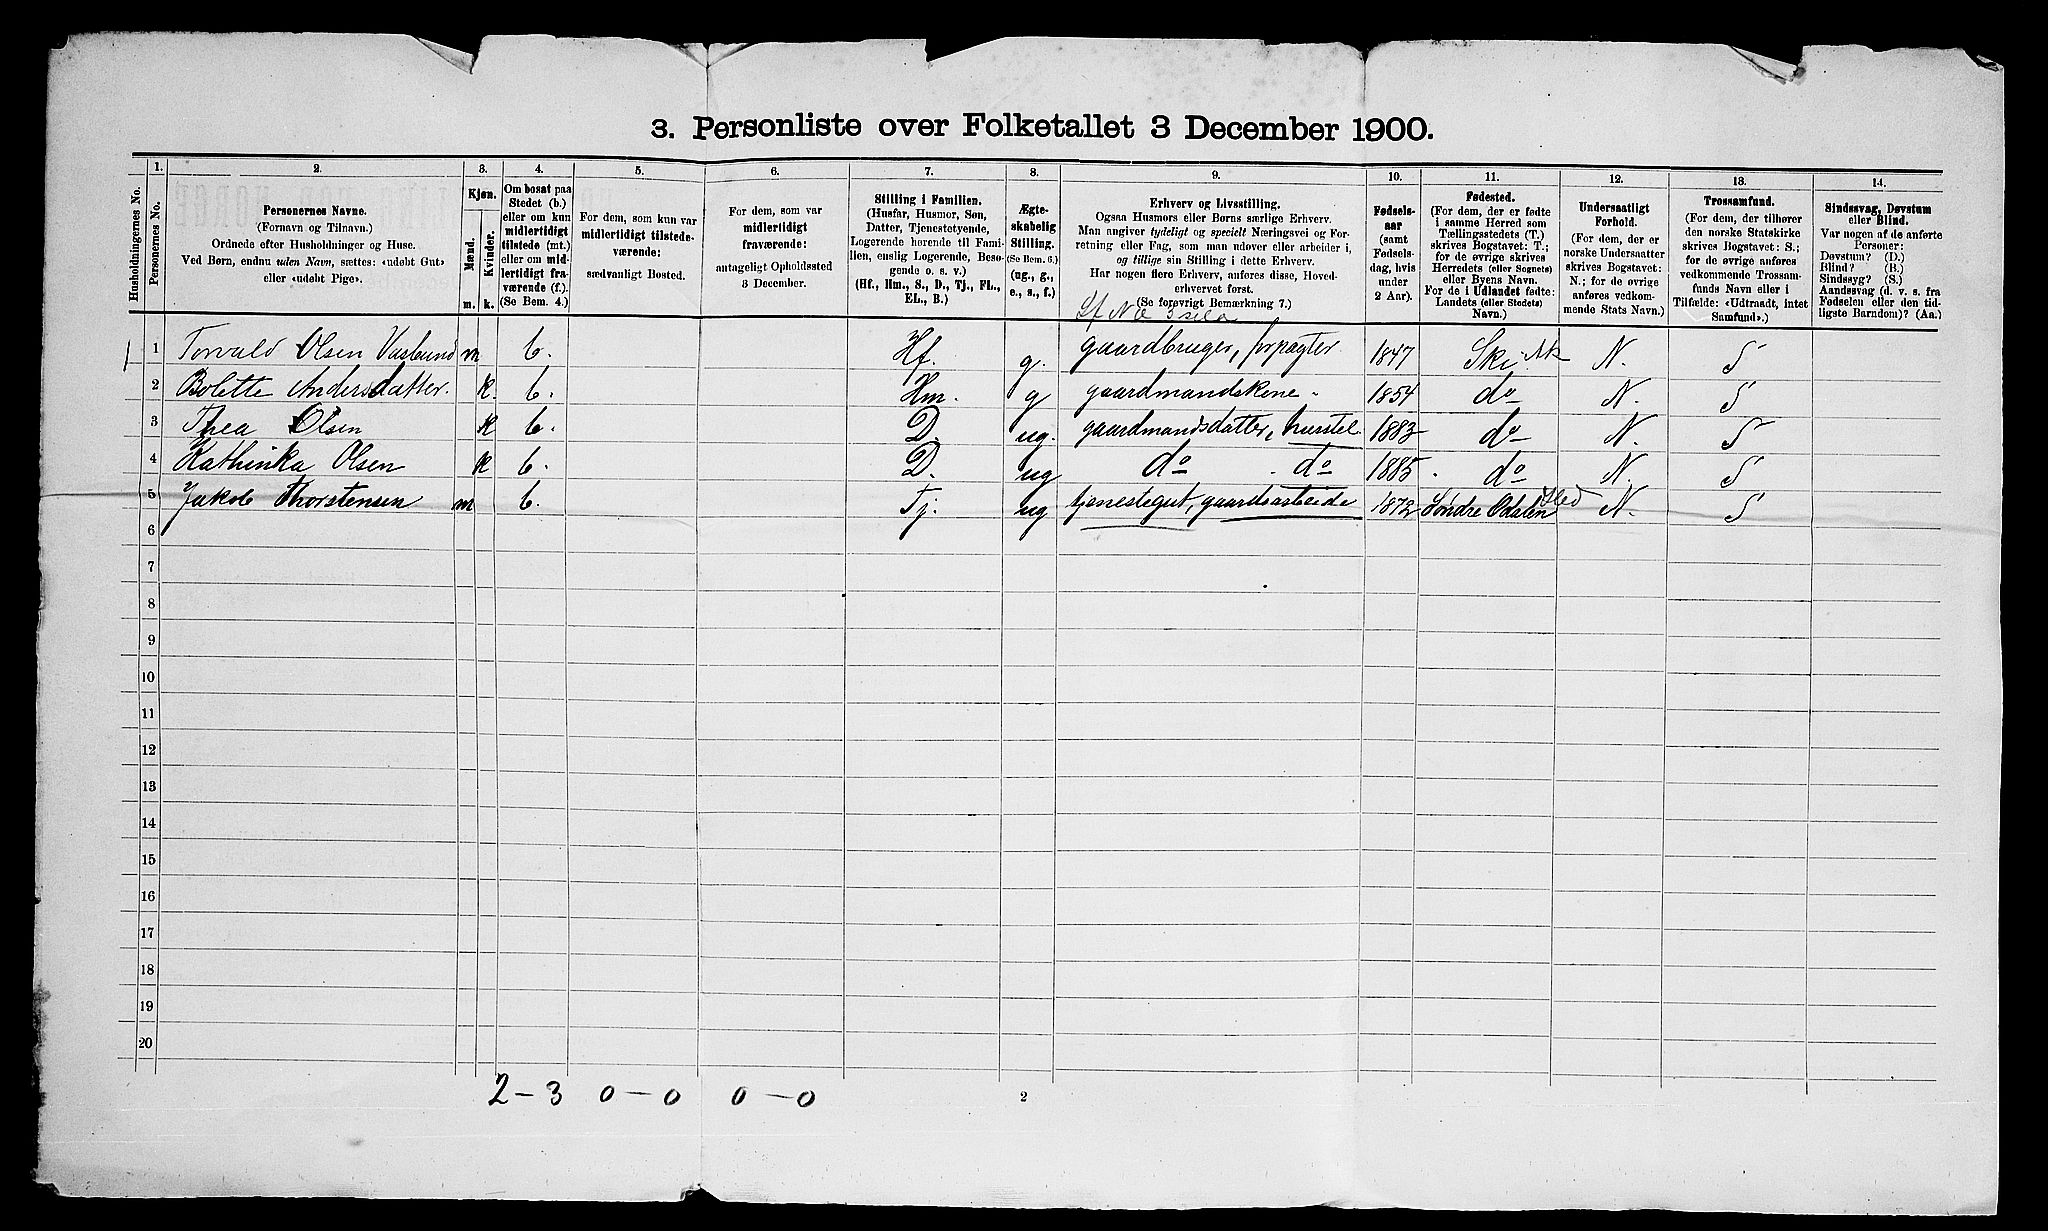 3. Personliste over Folketallet 3 December 1900.
Husholdningernes No.
1. Personernes No.
2. Personernes Navne.
(Fornavn og Tilnavn.)
Ordnede efter Husholdninger og Huse.
Ved Børn, endnu uden Navn, sættes: «udøbt Gut»
eller «udøbt Pige».
3. Kjøn.
Mænd. m.
Kvinder. k.
4. Om bosat paa
Stedet (b.)
eller om kun
midlertidigt
tilstede (mt.)
eller om mid-
lertidigt fra-
værende (f.).
(Se Bem. 4.)
5. For dem, som kun var
midlertidigt tilstede-
værende:
sædvanligt Bosted.
6. For dem, som var
midlertidigt
fraværende:
antageligt Opholdssted
3 December.
7. Stilling i Familien.
(Husfar, Husmor, Søn,
Datter, Tjenestetyende,
Logerende hørende til Fami-
lien, enslig Logerende, Besø-
gende o. s. v.)
(Hf., Hm., S., D., Tj., FL.,
EL., B.)
8. Ægte-
skabelig
Stilling.
(Se Bem. 6.)
(ug., g.,
e., s., f.)
9. Erhverv og Livsstilling.
Ogsaa Husmors eller Børns særlige Erhverv.
Man angiver tydeligt og specielt Næringsvei og For-
retning eller Fag, som man udover eller arbeider i,
og tillige sin Stilling i dette Erhverv.
Har nogen flere Erhverv, anføres disse, Hoved-
erhvervet først.
(Se forøvrigt Bemærkning 7.)
10. Fødsels-
aar
(samt
Fødsels-
dag, hvis
under
2 Aar).
11. Fødested.
(For dem, der er fødte
i samme Herred som
Tællingsstedets (T.)
skrives Bogstavet: T.;
for de øvrige skrives
Herredets (eller Sognets)
eller Byens Navn.
For de i Udlandet fødte:
Landets (eller Stedets)
Navn.)
12. Undersaatligt
Forhold.
(For dem, der er
norske Undersaatter
skrives Bogstavet:
N.; for de øvrige
anføres vedkom-
mende Stats Navn.)
13. Trossamfund.
(For dem, der tilhører
den norske Statskirke
skrives Bogstavet: S.;
for de øvrige anføres
vedkommende Trossam-
funds Navn eller i
Tilfælde: «Udtraadt, intet
Samfund».)
14. Sindssvag, Døvstum
eller Blind.
Var nogen af de anførte
Personer:
Døvstum? (D.)
Blind? (B.)
Sindssyg? (S.)
Aandssvag (d. v. s. fra
Fødselen eller den tid-
ligste Barndom)? (Aa.)
1 1 Torvald Olsen m b. Hf. g. gaardbruger, forpagter 1847 Ski Ak N. S
2 Bolette Andersdatter. k. b. Hm. g gaardmandskone 1854 do N. S
3 Thea Olsen k b. D. ug. gaardmandsdatter, husstel 1883 do N. S
4 Kathinka Olsen k b. D. ug do do 1885 do N. S
5 Jakob Thorstensen m b. Tj. ug tjenestegut, gaardsarbeide 1872 Søndre Odalen Hed N. S
6
7
8
9
10
11
12
13
14
15
16
17
18
19
20
2-3 0-0 0-0 2